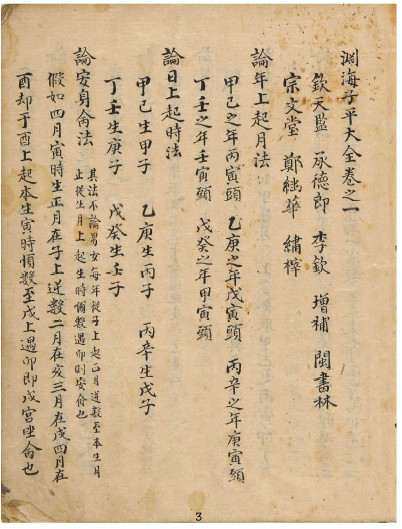 淵海子平大全卷之一
欽天監 承德郎 李欽 增補 閩書林
宗文堂 鄭繡華 繡梓
論年上起月法
甲己之年丙寅頭 乙庚之年戊寅頭 丙辛之年庚寅頭
丁壬之年壬寅頭 戊癸之年甲寅頭
論日上起時法
甲己生甲子 乙庚生丙子 丙辛生戊子
丁壬生庚子 戊癸生壬子
論安身命法
其法不論男女每年從子上起正月逆數至本生月
止從生月上起生時順數遇卯則安命也
假如四月寅時生正月在子上逆數二月在亥三月在戌四月在
酉却于酉上起本生寅時順數至戌上遇卯即戌宮坐命也
3